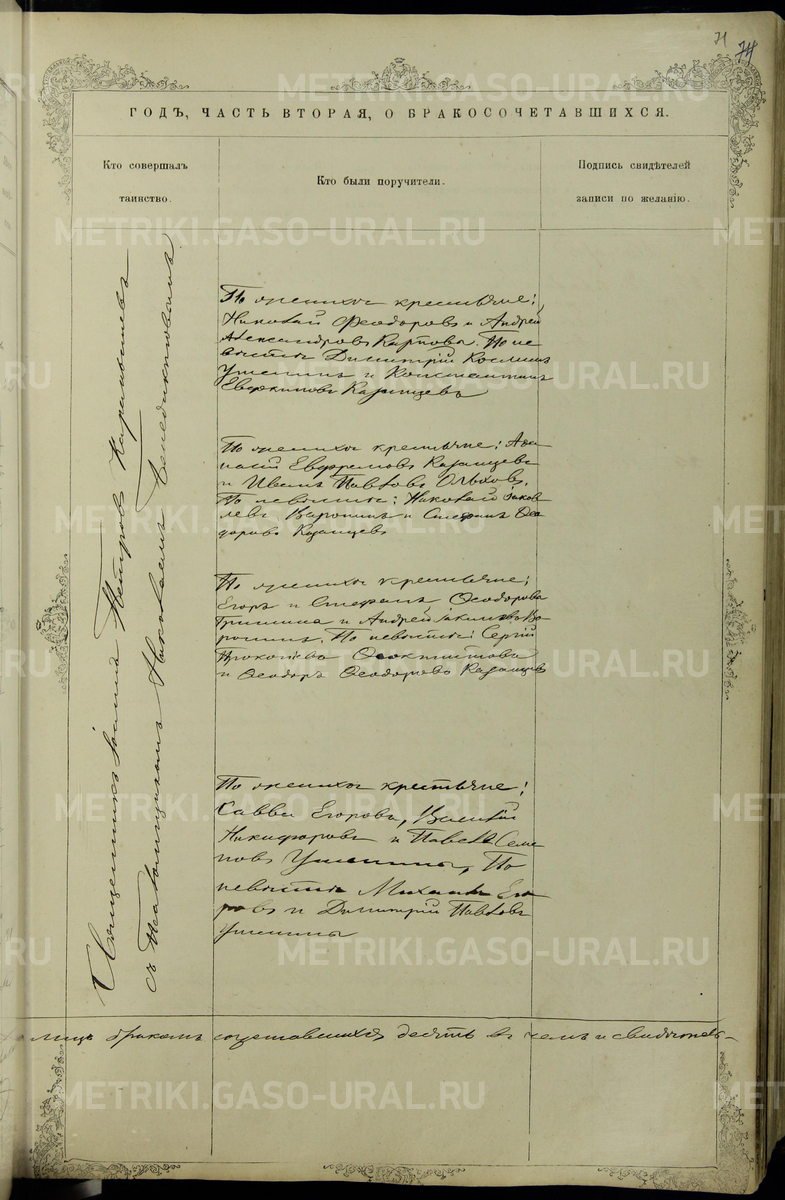 71
74
ГОДЪ, ЧАСТЬ ВТОРАЯ, О БРАКОСОЧЕТАВШИХСЯ.
Кто совершалъ
таинство.
Кто были поручители.
Подпись свидѣтелей
записи по желанію.
Священникъ Іоаннъ Петровъ
съ Псаломщикомъ Николаемъ Бенедиктовымъ
По женихѣ крестьяне:
Николай Феодоровъ и Андрей
Александровъ Карповы. По не
вѣстѣ Димитрій Косминъ
Ушенинъ и Константинъ
Казанцевъ
По женихѣ крестьяне: Афа
насій Ефремовъ Казанцевъ
и Иванъ Павловъ
По невѣстѣ: Николай Яков
левъ Воронинъ и Стефанъ Фео
доровъ Казанцевъ
По женихѣ крестьяне:
Егоръ и Стефанъ Феодоровы
и Андрей Во
ронинъ. По невѣстѣ: Сергій
Прокопьевъ
и Феодоръ Феодоровъ Казанцевъ
По женихѣ крестьяне:
Савва Егоровъ, Василій
Никифоровъ и Павелъ Семе
новъ Ушенины, По
невѣстѣ Михаилъ Его
ровъ и Димитрій Павловъ
Ушенины
лицъ бракомъ сочетавшихся десять въ чемъ и свидѣтель-
METRIKI.GASO-URAL.RU